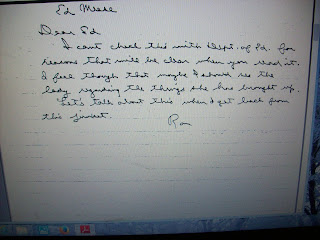 Ed Meese
Dear Ed
I can't check this with Dept. of Ed. for
reasons that will be clear when you read it.
I feel though that maybe I should see the
lady regarding the things she has brought up.
Let's talk about this when I get back from
this junket.
Ron